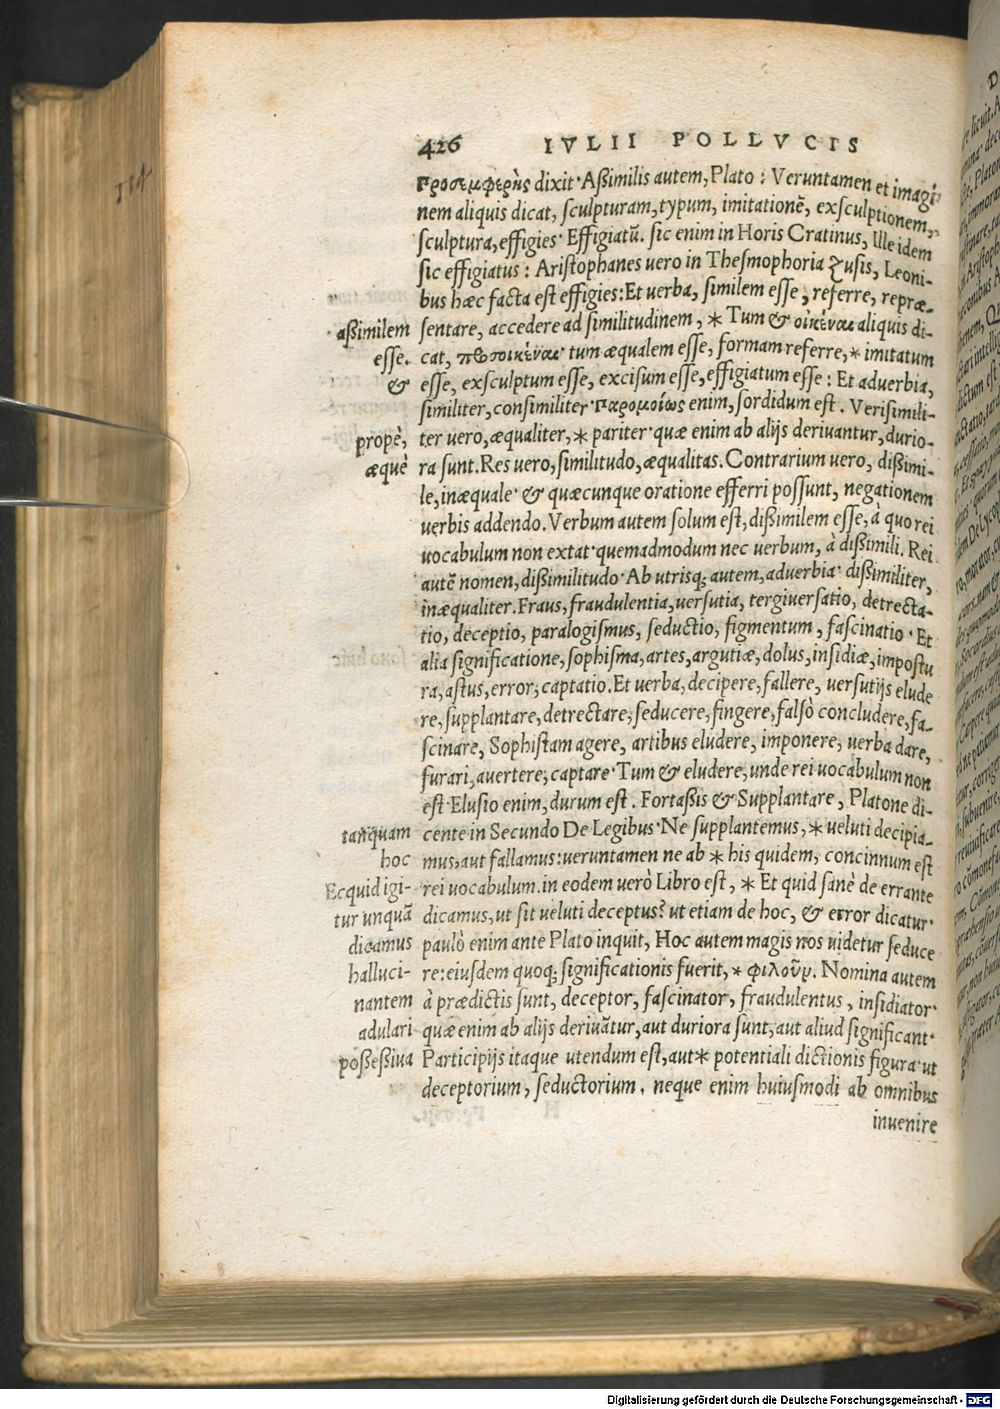 114
426 IVLII POLLVCIS
προσεμφερὴς dixit· Aßimilis autem, Plato : Veruntamen et imagi
nem aliquis dicat, sculpturam, typum, imitationē, exsculptionem,
sculptura, effigies· Effigiatū. sic enim in Horis Cratinus, Ille idem
sic effigiatus : Aristophanes uero in Thesmophoria ζusis, Leoni-
bus hæc facta est effigies: Et uerba, similem esse, referre, repræ-
aßimilem sentare, accedere ad similitudinem, * Tum & οἰκέναι aliquis di-
esse. cat, tum æqualem esse, formam referre, * imitatum
& esse, exsculptum esse, excisum esse, effigiatum esse : Et aduerbia,
similiter, consimiliter· παρομοίως enim, sordidum est. Verisimili-
propè, ter uero, æqualiter, * pariter· quæ enim ab alijs deriuantur, durio-
æquè ra sunt. Res uero, similitudo, æqualitas. Contrarium uero, dißimi-
le, inæquale· & quæcunque oratione efferri possunt, negationem
uerbis addendo. Verbum autem solum est, dißimilem esse, à quo rei
uocabulum non extat· quemadmodum nec uerbum, à dißimili. Rei
autē nomen, dißimilitudo· Ab utrisq; autem, aduerbia· dißimiliter,
inæqualiter. Fraus, fraudulentia, uersutia, tergiuersatio, detrecta-
tio, deceptio, paralogismus, seductio, figmentum, fascinatio· Et
alia significatione, sophisma, artes, argutiæ, dolus, insidiæ, impostu
ra, astus, error, captatio. Et uerba, decipere, fallere, uersutijs elude
re, supplantare, detrectare, seducere, fingere, falsò concludere, fa-
scinare, Sophistam agere, artibus eludere, imponere, uerba dare,
furari, auertere, captare· Tum & eludere, unde rei uocabulum non
est· Elusio enim, durum est. Fortaßis & Supplantare, Platone di-
tanquam cente in Secundo De Legibus· Ne supplantemus, * ueluti decipia-
hoc mus, aut fallamus: ueruntamen ne ab * his quidem, concinnum est
Ecquid igi- rei uocabulum. in eodem uerò Libro est, * Et quid sanè de errante
tur unquā dicamus, ut sit ueluti deceptus? ut etiam de hoc, & error dicatur·
dicamus paulò enim ante Plato inquit, Hoc autem magis nos uidetur seduce
halluci- re: eiusdem quoq; significationis fuerit, * φιλοῦρ. Nomina autem
nantem à prædictis sunt, deceptor, fascinator, fraudulentus, insidiator·
adulari quæ enim ab alijs deriuātur, aut duriora sunt, aut aliud significant·
poßeßiua Participijs itaque utendum est, aut * potentiali dictionis figura· ut
deceptorium, seductorium. neque enim huiusmodi ab omnibus
inuenire
Digitalisierung gefördert durch die Deutsche Forschungsgemeinschaft - DFG